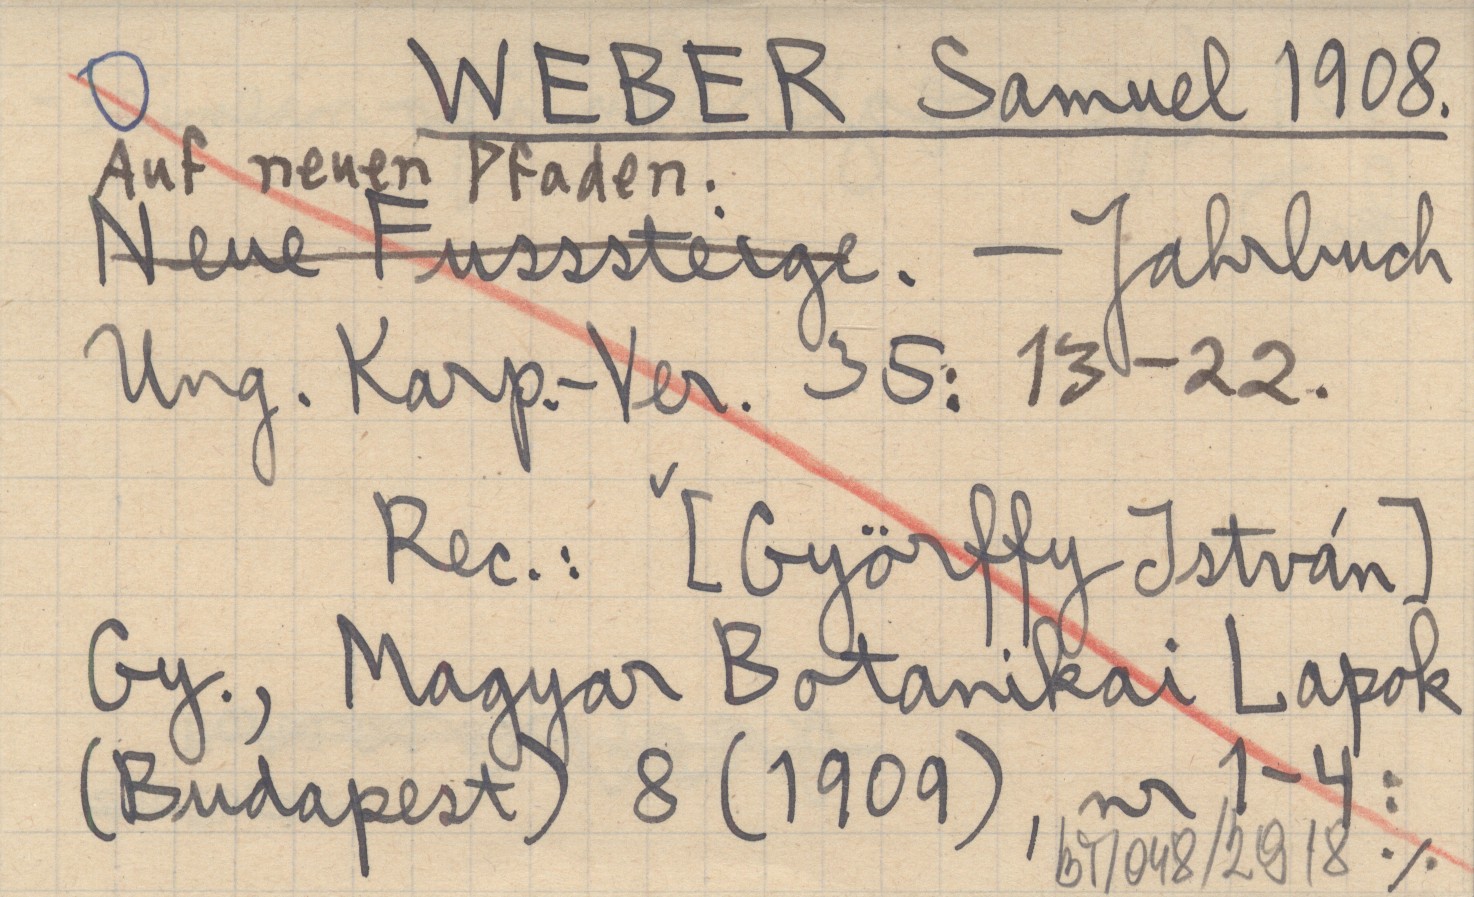 WEBER Samuel 1908.
Auf neuen Pfaden.
Neue Fusssteige. — Jahrbuch
Ung. Karp.-Ver. 35: 13-22.
Rec.: [Györffy István]
Gy., Magyar Botanikai Lapok
(Budapest) 8 (1909), nr 1-4:
bT/048/2918 ·/.